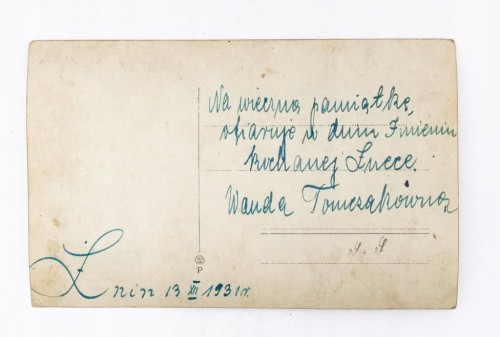 Na wieczną pamiątkę,
ofiaruje w dniu Imienin
kochanej Łucce.
Wanda Tomczakówna
Żnin 13 XII 1931r.
P